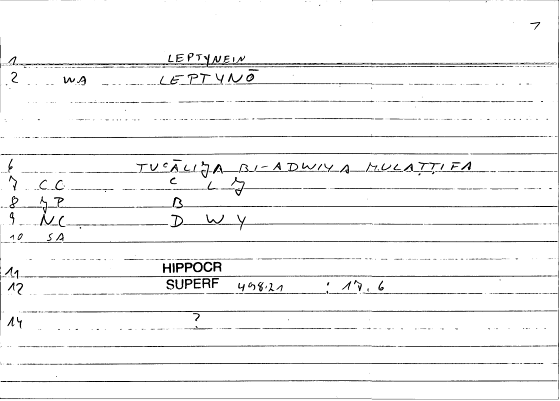 7
1 LEPTYNEIN
2 WA LEPTYNŌ
6 TUʿĀLIJA BI-ADWIYA MULAṬṬIFA
7 CC C L J
8 JP B
9 NC D W Y
10 SA
11 HIPPOCR
12 SUPERF 498.21 : 17.6
14 ?